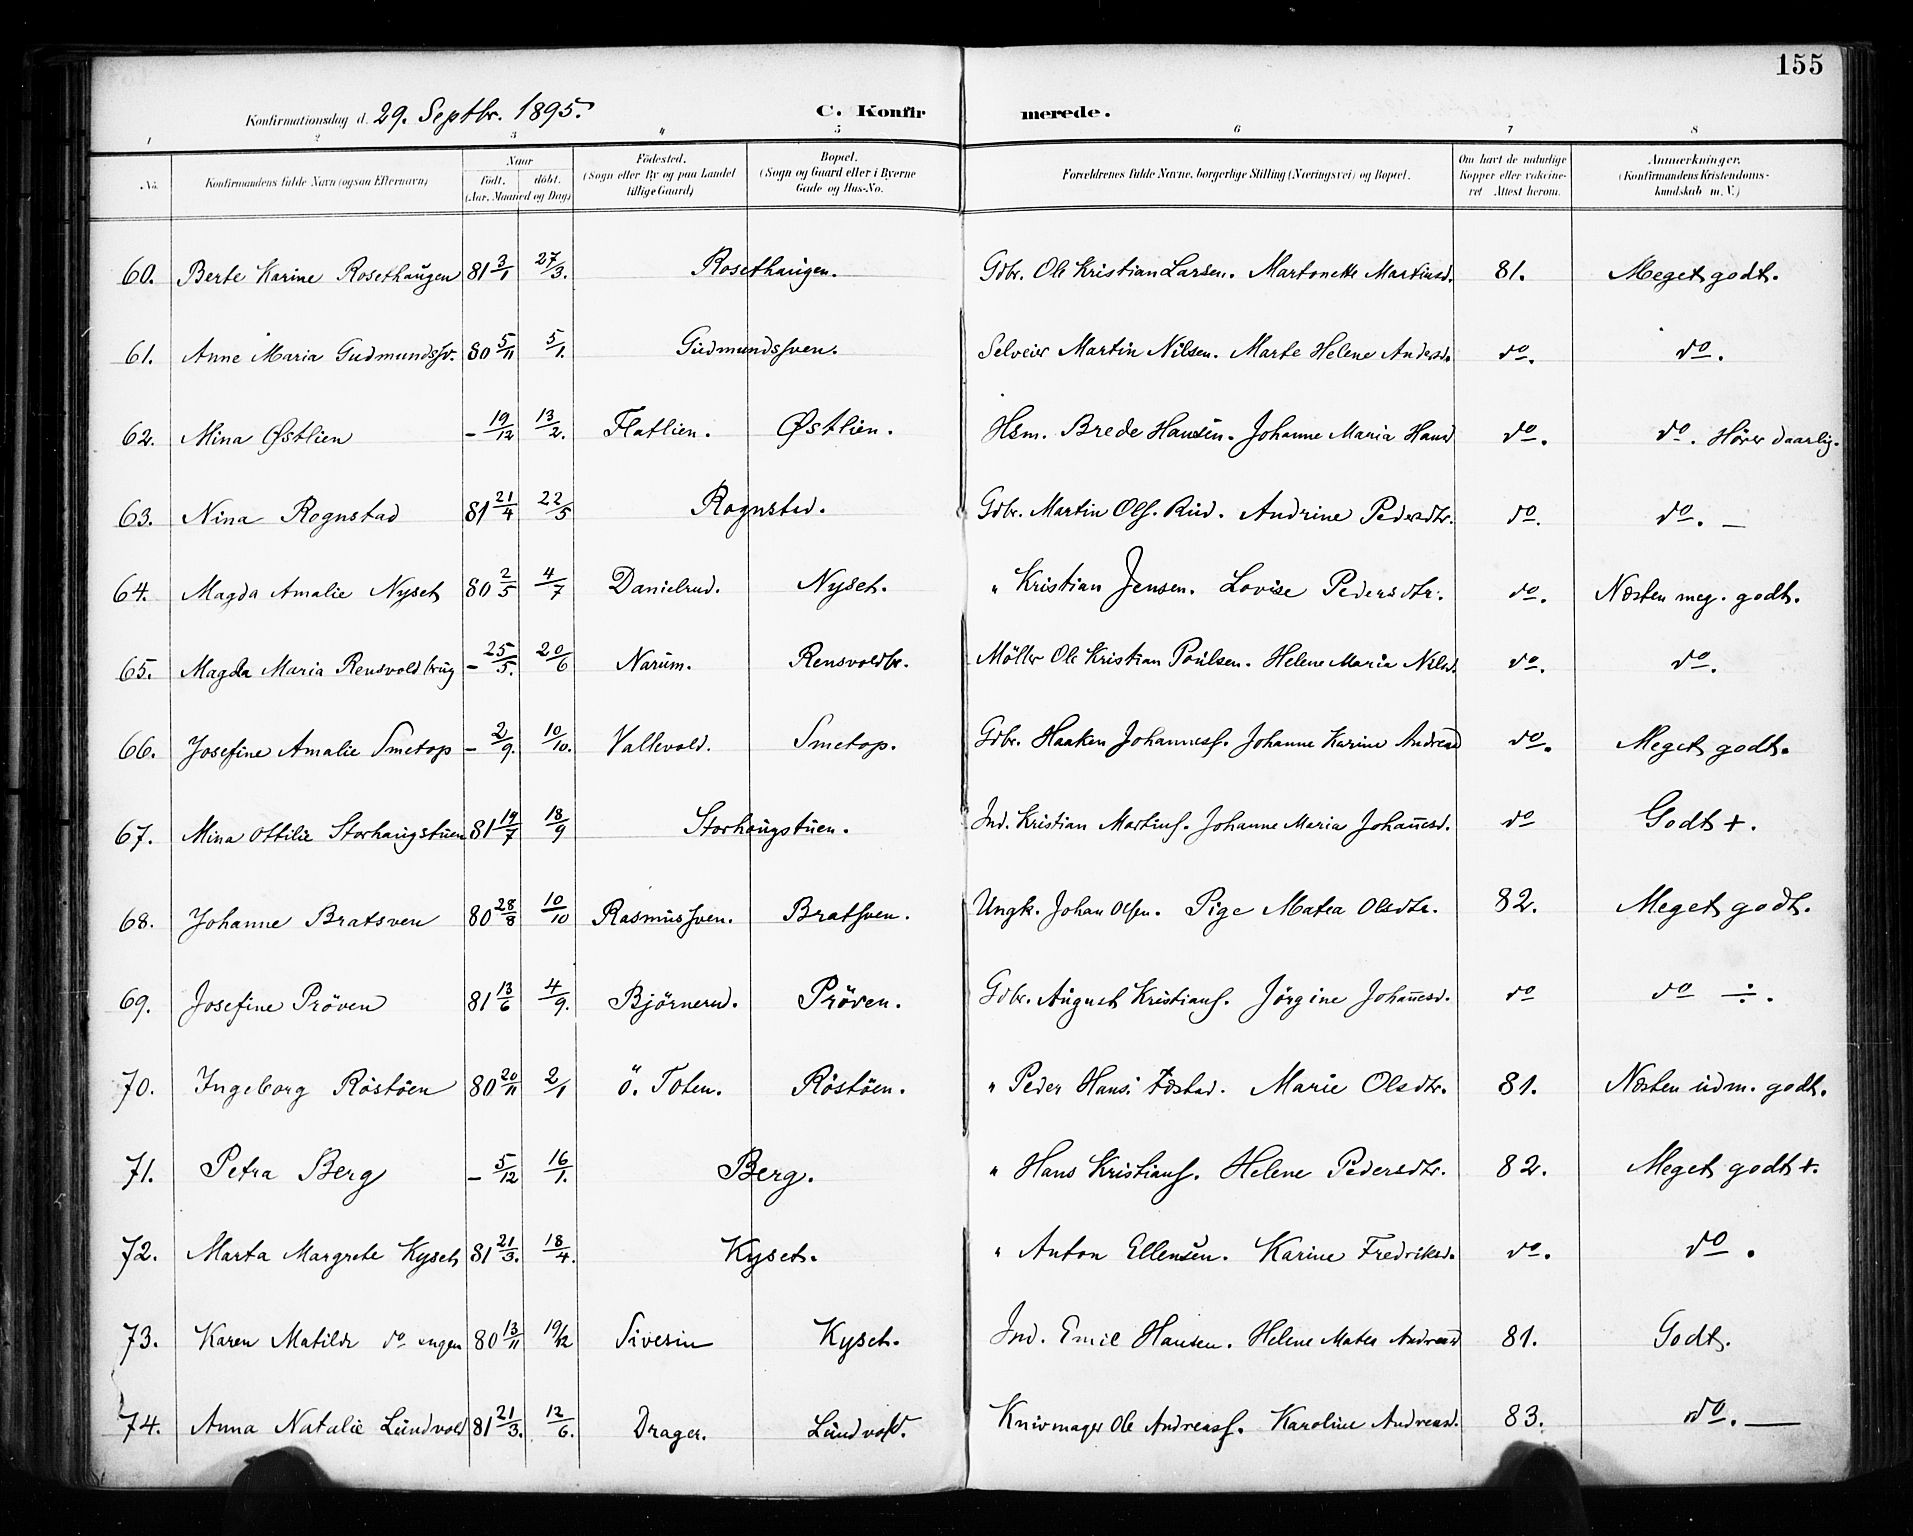 155
Konfirmationsdag d. 29. Septbr. 1895. C. Konfirmerede.
1 2 3 4 5 6 7 8
No. Konfirmandens fulde Navn (ogsaa Efternavn) Naar födt. döbt. (Aar, Maaned og Dag) Födested. (Sogn eller By og paa Landet tillige Gaard) Bopæl. (Sogn og Gaard eller i Byerne Gade og Hus-No. Forældrenes fulde Navne, borgerlige Stilling (Næringsvei) og Bopæl. Om havt de naturlige Kopper eller vakcineret Attest herom. Anmærkninger. (Konfirmandens Kristendomskundskab m. V.)
60. Berte Karine Rosethaugen 81 3/1 27/3. Rosethaugen. Gdbr. Ole Kristian Larsen. Martonette Martinsd. 81. Meget godt.
61. Anne Maria Gudmundssv. 80 5/11 5/1. Gudmundssven. Selveier Martin Nilsen. Marte Helene Andersd. do. do.
62. Mina Østlien - 19/12 13/2. Flatlien. Østlien. Hsm. Brede Hansen. Johanne Maria Hansd do. do. Hører daarlig.
63. Nina Rognstad 81 21/4 22/5 Rognstad. Gdbr. Martin Ols. Rud. Andrine Pedersdtr. do. do. —
64. Magda Amalie Nyset 80 2/5 4/7 Danielrud. Nyset. " Kristian Jensen. Lovise Pedersdtr. do. Næsten meg. godt.
65. Magda Maria Rensvoldbrug - 25/5. 20/6 Narum. Rensvoldbr. Möller Ole Kristian Poulsen. Helene Maria Nilsd. do. do.
66. Josefine Amalie Smetop - 2/9. 10/10. Vallevold. Smetop. Gdbr. Haaken Johanness. Johanne Karine Andreasd do. Meget godt.
67. Mina Ottilie Storhaugstuen 81 19/7 18/9 Storhaugstuen. Ind. Kristian Martins. Johanne Maria Johan̄esd. do Godt +.
68. Johanne Bratsven 80 28/8 10/10 Rasmussven. Bratsven. Ungk. Johan Olsen. Pige Matea Olsdtr. 82. Meget godt.
69. Josefine Pröven 81 13/6 4/9. Björnerud. Pröven. Gdbr. August Kristians. Jörgine Johan̄esd. do do ÷.
70. Ingeborg Röstöen 80 20/11 2/1 ö. Toten. Röstöen. " Peder Hans. Fostad. Marie Olsdtr. 81. Næsten udm. godt.
71. Petra Berg - 5/12 16/1. Berg. " Hans Kristians. Helene Pedersdtr. 82. Meget godt +.
72. Marta Margrete Kyset 81 21/3. 18/4. Kyset. " Anton Ellensen. Karine Fredriksd. do. do.
73. Karen Matilde do engen 80 13/11 19/12 Sivesin Kyset. Ind. Emil Hansen. Helene Matea Andreasd 81. Godt.
74. Anna Natalie Lundvold 81 21/3. 12/6. Drager. Lundvold. Knivmager Ole Andreass. Karoline Andreasd. 83. do. —